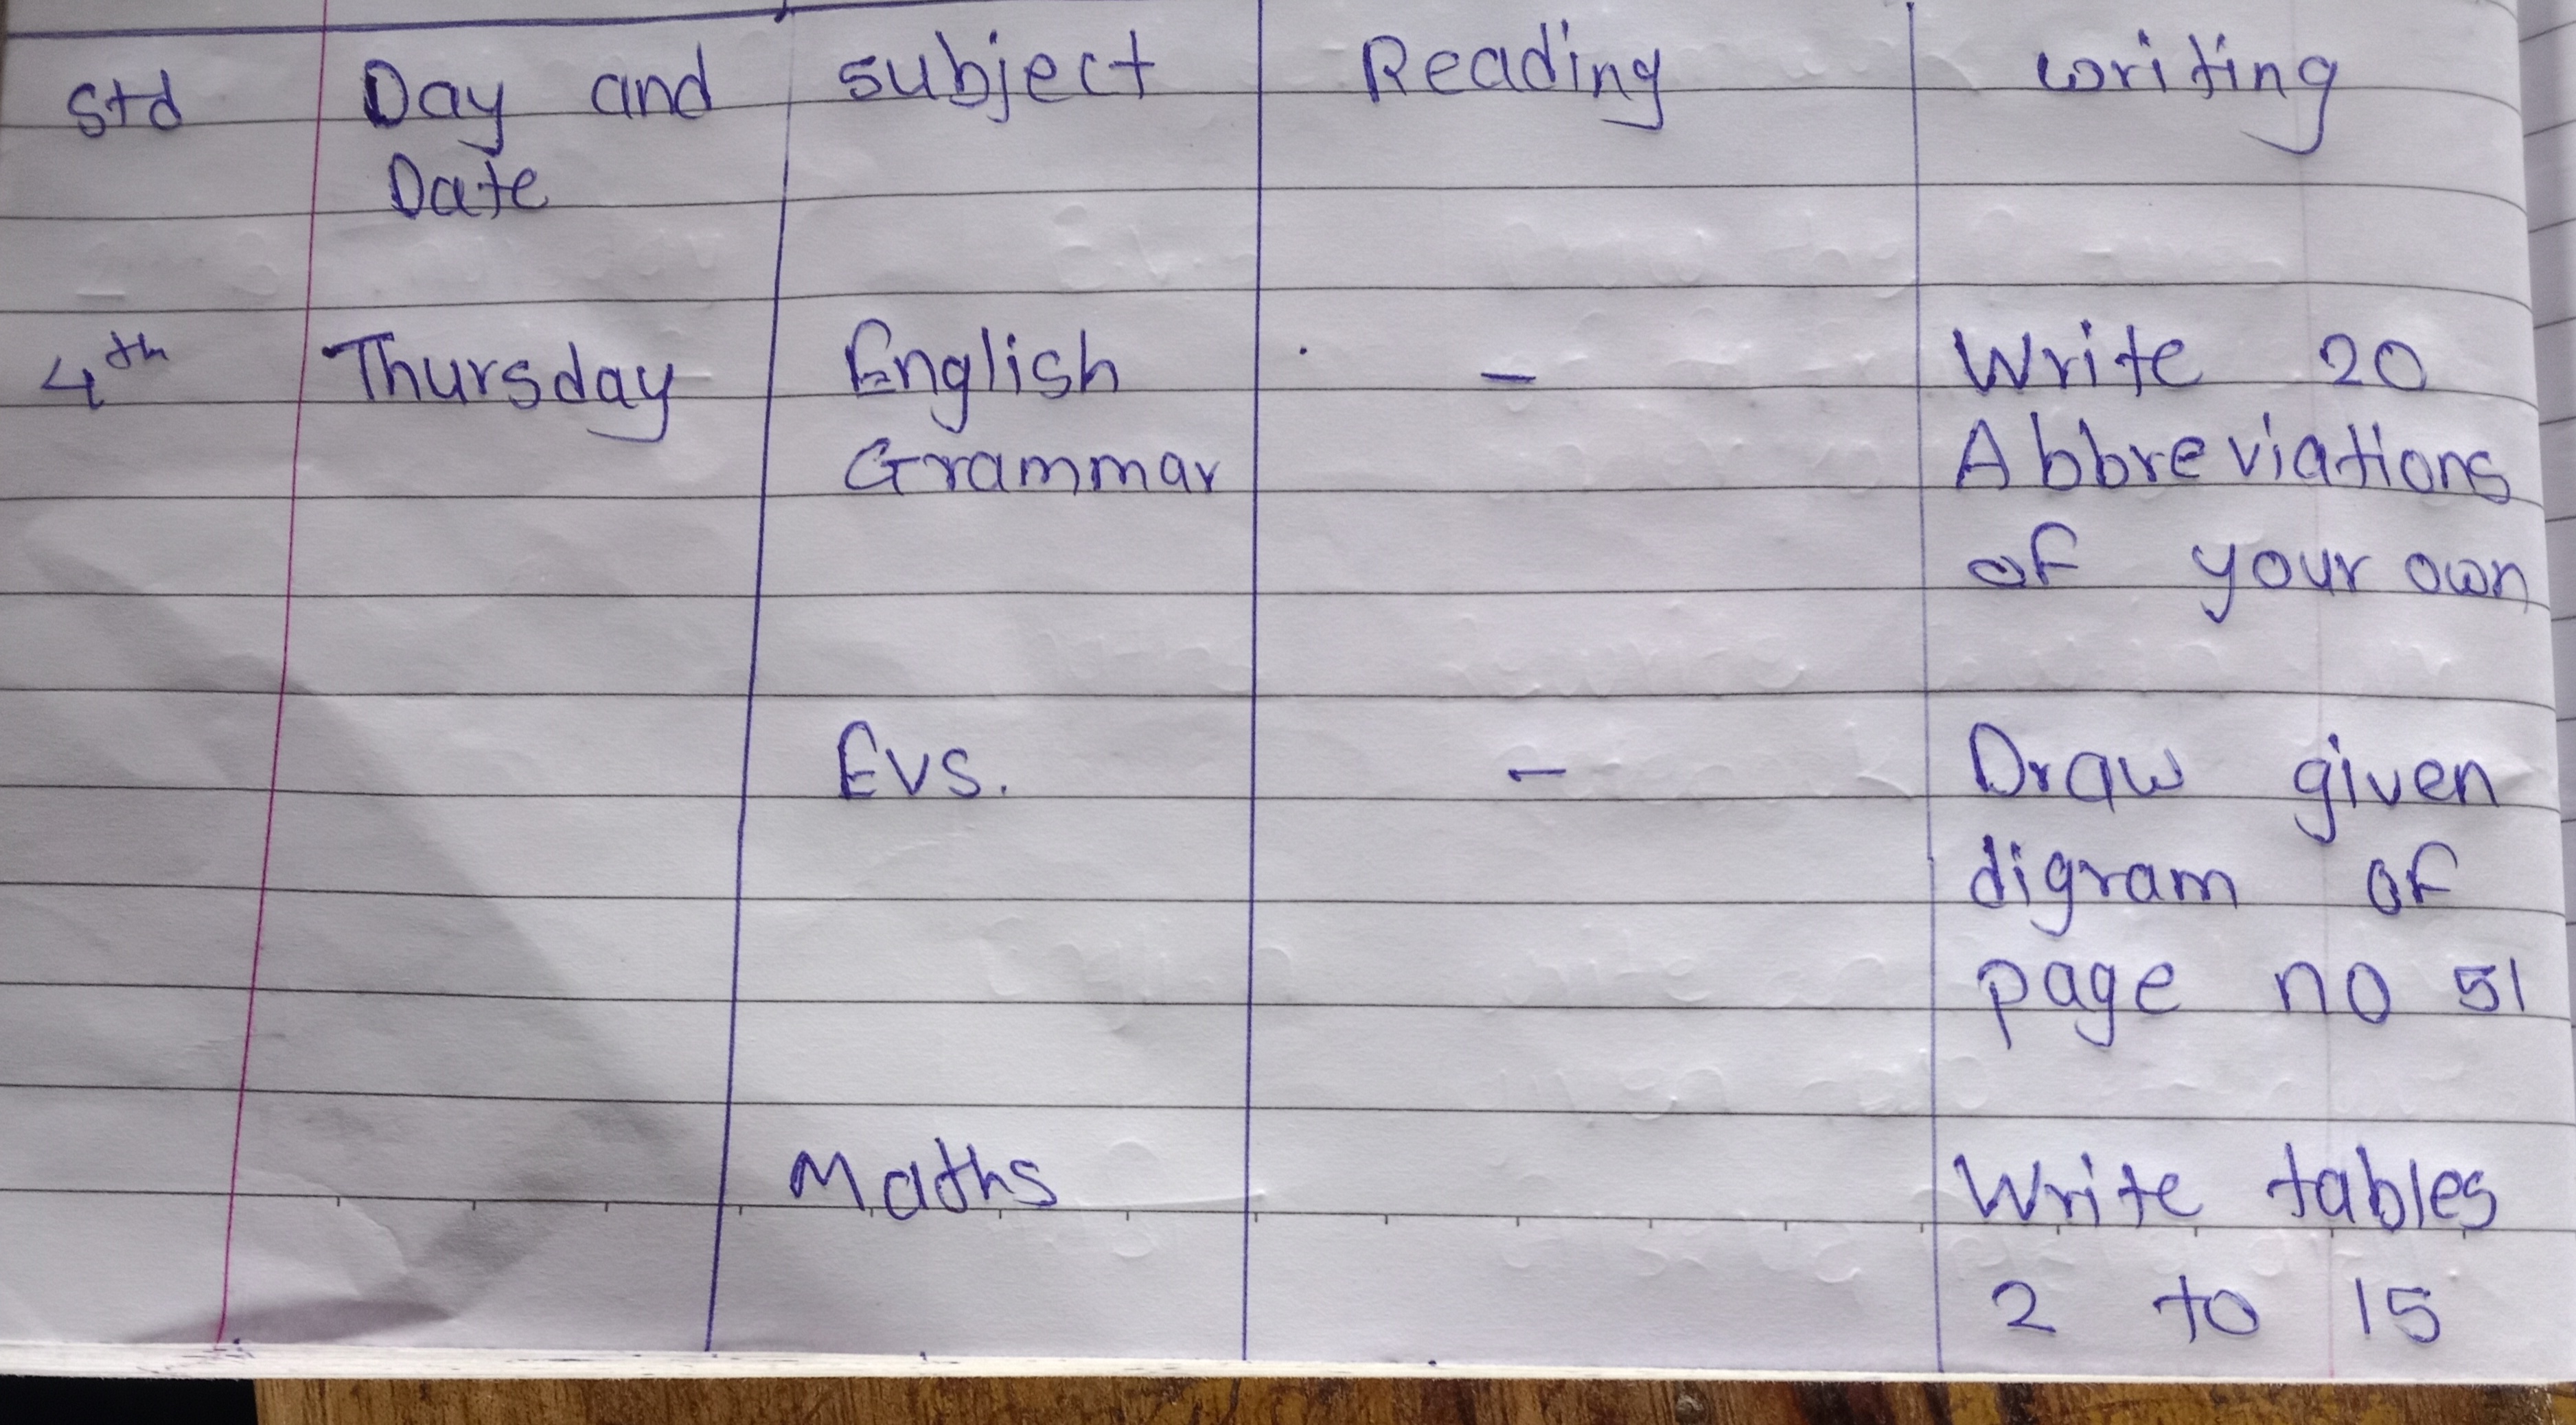 Std Day and subject Reading writing
Date
4th Thursday English - Write 20
Grammar Abbreviations
of your own
Evs. - Draw given
digram of
page no 51
Maths Write tables
2 to 15